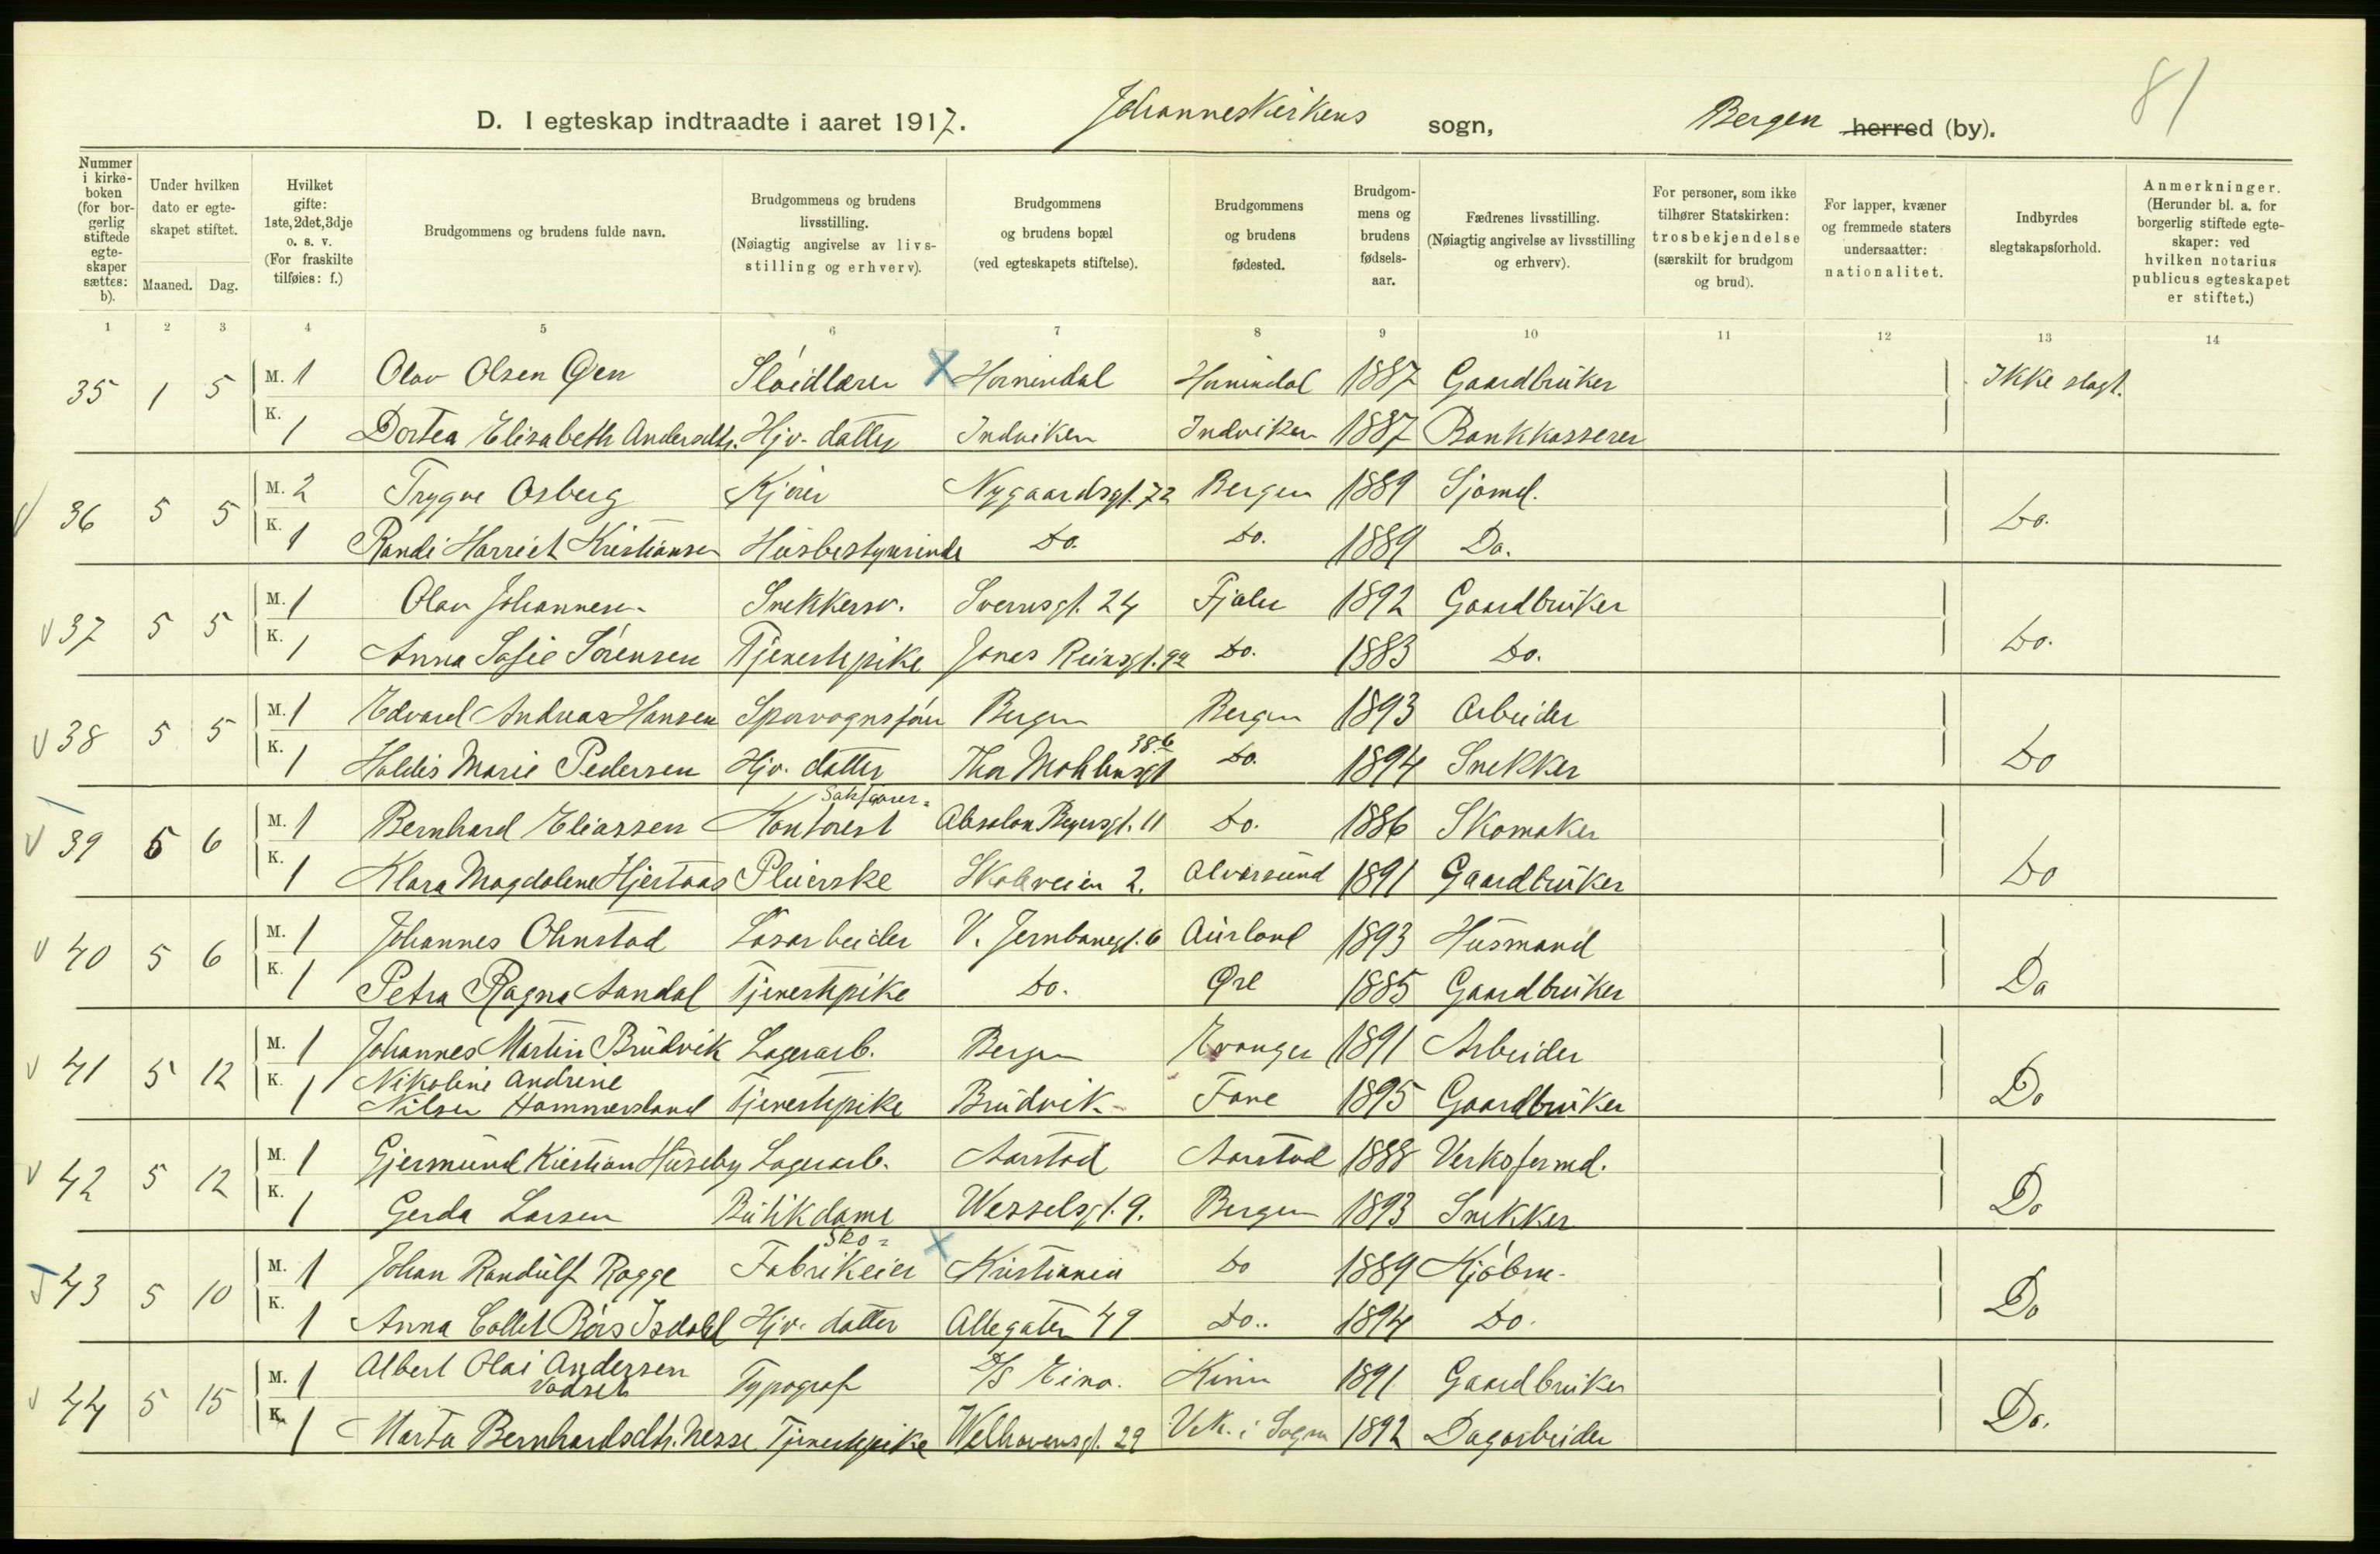 81
D. I egteskap indtraadte i aaret 1917. Johanneskirkens sogn, Bergen herred (by).
Nummer i kirkeboken (for borgerlig stiftede egteskaper sættes: b).
Under hvilken dato er egteskapet stiftet.
Maaned. Dag.
Hvilket gifte: 1ste, 2det, 3dje o. s. v. (For fraskilte tilføies: f.)
Brudgommens og brudens fulde navn.
Brudgommens og brudens livsstilling. (Nøiagtig angivelse av livsstilling og erhverv).
Brudgommens og brudens bopæl (ved egteskapets stiftelse).
Brudgommens og brudens fødested.
Brudgommens og brudens fødselsaar.
Fædrenes livsstilling. (Nøiagtig angivelse av livsstilling og erhverv).
For personer, som ikke tilhører Statskirken: trosbekjendelse (særskilt for brudgom og brud).
For lapper, kvæner og fremmede staters undersaatter: nationalitet.
Indbyrdes slegtskapsforhold.
Anmerkninger. (Herunder bl. a. for borgerlig stiftede egteskaper: ved hvilken notarius publicus egteskapet er stiftet.)
1 2 3 4 5 6 7 8 9 10 11 12 13 14
35 1 5 M. 1 Olav Olsen Øen Sløidlærer X Hornindal Hornindal 1887 Gaardbruker Ikke slagt.
K. 1 Dortea Elisabeth Andersdtr. Hjv. datter Indviken Indviken 1887 Bankkasserer
V 36 5 5 M. 2 Trygve Osberg Kjører Nygaardsgt. 72 Bergen 1889 Sjømd. Do.
K. 1 Randi Harriet Kristiansen Husbestyrerinde Do. Do. 1889 Do.
V 37 5 5 M. 1 Olav Johannesen Snekkersv. Sverresgt. 24 Fjaler 1892 Gaardbruker Do.
K. 1 Anna Sofie Sørensen Tjenestepike Jonas Reinsgt. 92 Do. 1883 Do.
V 38 5 5 M. 1 Edvard Andreas Hansen Sporvognsfører Bergen Bergen 1893 Arbeider Do
K. 1 Haldis Marie Pedersen Hjv. datter Thor Møhlensgt 38b Do. 1894 Snekker
V 39 5 6 M. 1 Bernhard Eliassen Sakfører= Kontorist Absalon Beyersgt. 11 Do. 1886 Skomaker Do
K. 1 Klara Magdalene Hjertaas Pleierske Skoleveien 2. Alversund 1891 Gaardbruker
V 40 5 6 M. 1 Johannes Ohnstad Løsarbeider V. Jernbanegt. 6 Aurland 1893 Husmand Do
K. 1 Petra Ragna Aandal Tjenestepike Do. Øre 1885 Gaardbruker
V 41 5 12 M. 1 Johannes Martin Brudvik Lagerarb. Bergen Evanger 1891 Arbeider Do
K. 1 Nikoline Andrine Nilsen Hammersland Tjenestepike Brudvik Fane 1895 Gaardbruker
V 42 5 12 M. 1 Gjermund Kristian Huseby Lagerarb. Aarstad Aarstad 1888 Verksformd. Do
K. 1 Gerda Larsen Butikdame Wesselsgt. 9. Bergen 1893 Snekker
43 5 10 M. 1 Johan Randulf Rogge Sko= Fabrikeier X Kristiania Do 1889 Kjøbm. Do
K. 1 Anna Collet Børs Isdahl Hjv. datter Allegaten 49 Do.. 1894 Do.
V 44 5 15 M. 1 Albert Olai Andersen Vadseth Typograf D/S Eina. Kinn 1891 Gaardbruker Do.
K. 1 Marta Bernhardsdtr. Nesse Tjenestepike Welhavensgt. 29 Vik i Sogn 1892 Dagarbeider